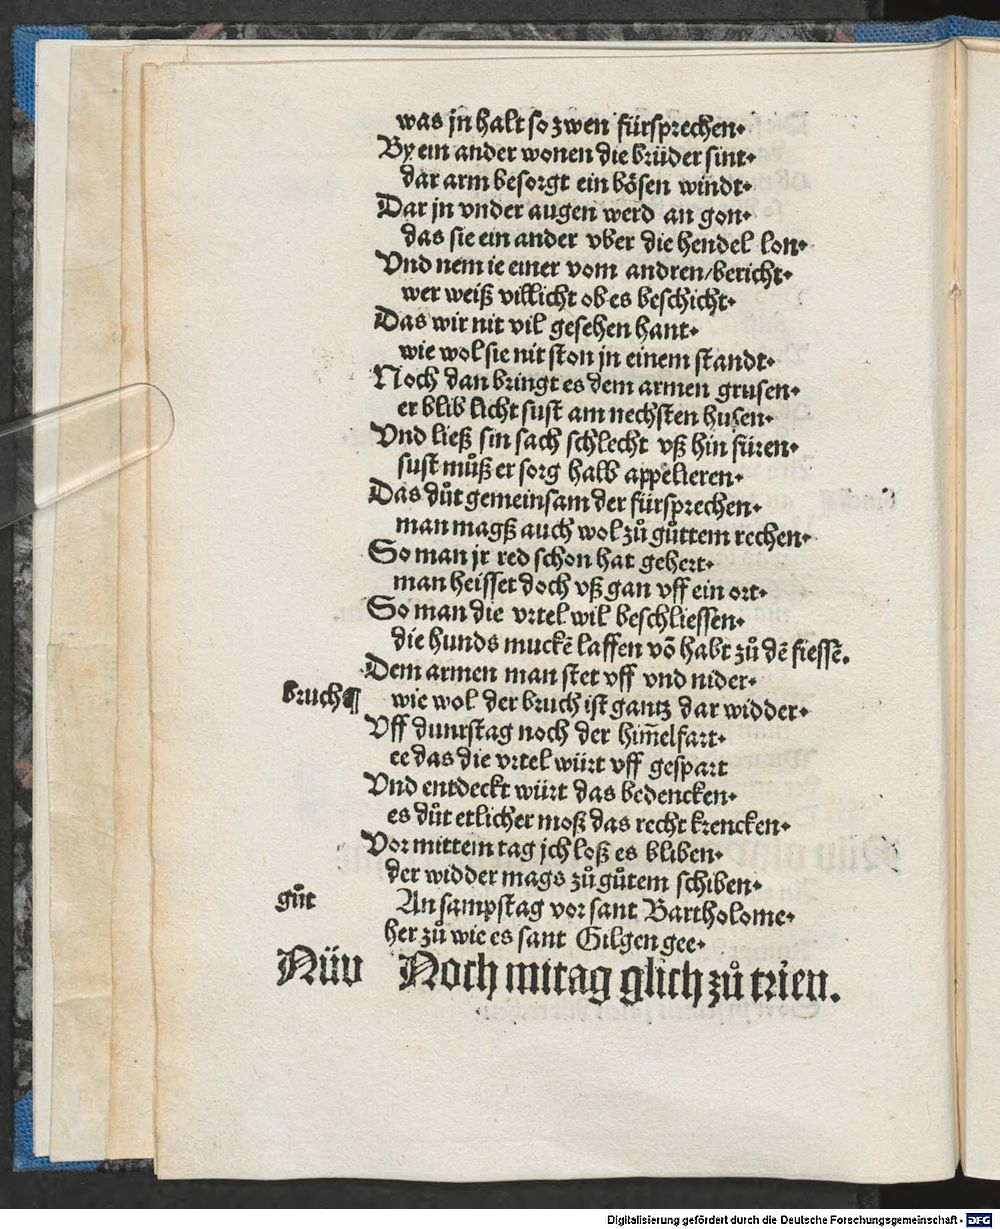 was jn halt so zwen fürsprechen.
By ein ander wonen die brüder sint.
dar arm besorgt ein bösen windt.
Dar jn vnder augen werd an gon.
das sie ein ander vber die hendel lon.
Vnd nem ie einer vom andren/bericht.
wer weiß villicht ob es beschicht.
Das wir nit vil gesehen hant.
wie wol sie nit ston jn einem standt.
Noch dan bringt es dem armen grusen.
er blib licht sust am nechsten husen.
Vnd ließ sin sach schlecht vß hin füren.
sust můß er sorg halb appelieren.
Das důt gemeinsam der fürsprechen.
man magß auch wol zů gůttem rechen.
So man jr red schon hat gehert.
man heisset doch vß gan vff ein ort.
So man die vrtel wil beschliessen.
die hunds muckē lassen vō habt zů dē fiessē.
Dem armen man stet vff vnd nider.
bruch¶ wie wol der bruch ist gantz dar widder.
Vff dunrstag noch der him̄elfart.
ee das die vrtel würt vff gespart
Vnd entdeckt würt das bedencken.
es důt etlicher moß das recht krencken.
Vor mittem tag jch loß es bliben.
der widder mags zů gůtem schiben.
gůt An sampstag vor sant Bartholome.
her zů wie es sant Gilgen gee.
Nüv Noch mitag glich zů trien.
Digitalisierung gefördert durch die Deutsche Forschungsgemeinschaft - DFG